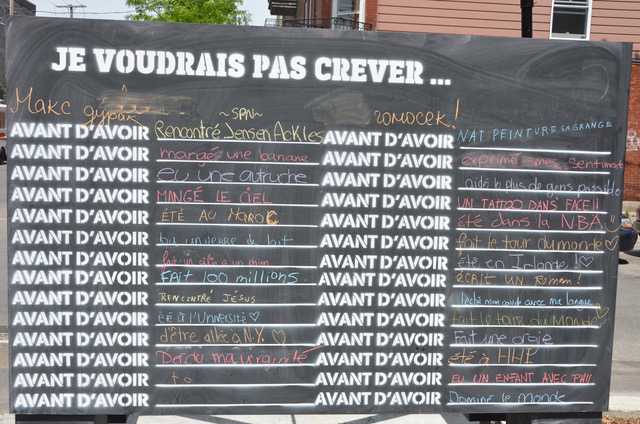 JE VOUDRAIS PAS CREVER ...
Макс дурак
~SPN~
гомосек!
AVANT D'AVOIR Rencontré Jensen Ackles
AVANT D'AVOIR mangé une banane
AVANT D'AVOIR eu une autruche
AVANT D'AVOIR MANGÉ LE CIEL
AVANT D'AVOIR ÉTÉ AU MAROC
AVANT D'AVOIR bu un verre de lait
AVANT D'AVOIR fait un câlin à un
AVANT D'AVOIR FAIT 100 millions
AVANT D'AVOIR RENCONTRÉ JÉSUS
AVANT D'AVOIR été à l'Université ♡
AVANT D'AVOIR d'être allée à N.Y. ♡
AVANT D'AVOIR Perdu ma virginité
AVANT D'AVOIR to
AVANT D'AVOIR
AVANT D'AVOIR NAT PEINTURE SAGRANGE
AVANT D'AVOIR exprimé mes sentiment
AVANT D'AVOIR aidé le plus de gens possible
AVANT D'AVOIR UN TATTOO DANS FACE!!
AVANT D'AVOIR été dans la NBA
AVANT D'AVOIR fait le tour du monde ♡
AVANT D'AVOIR été en Irlande! ♡
AVANT D'AVOIR ÉCRIT UN ROMAN!
AVANT D'AVOIR léché mon coude avec ma langue
AVANT D'AVOIR fait le tour du Monde ♡
AVANT D'AVOIR Fait une
AVANT D'AVOIR été à
AVANT D'AVOIR EU UN ENFANT AVEC PHIL
AVANT D'AVOIR Dominé le monde